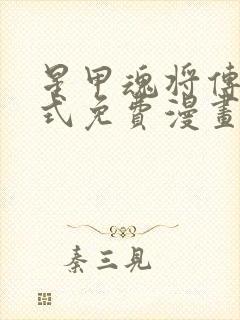 星甲魂将傳
式免費漫畫
秦三見